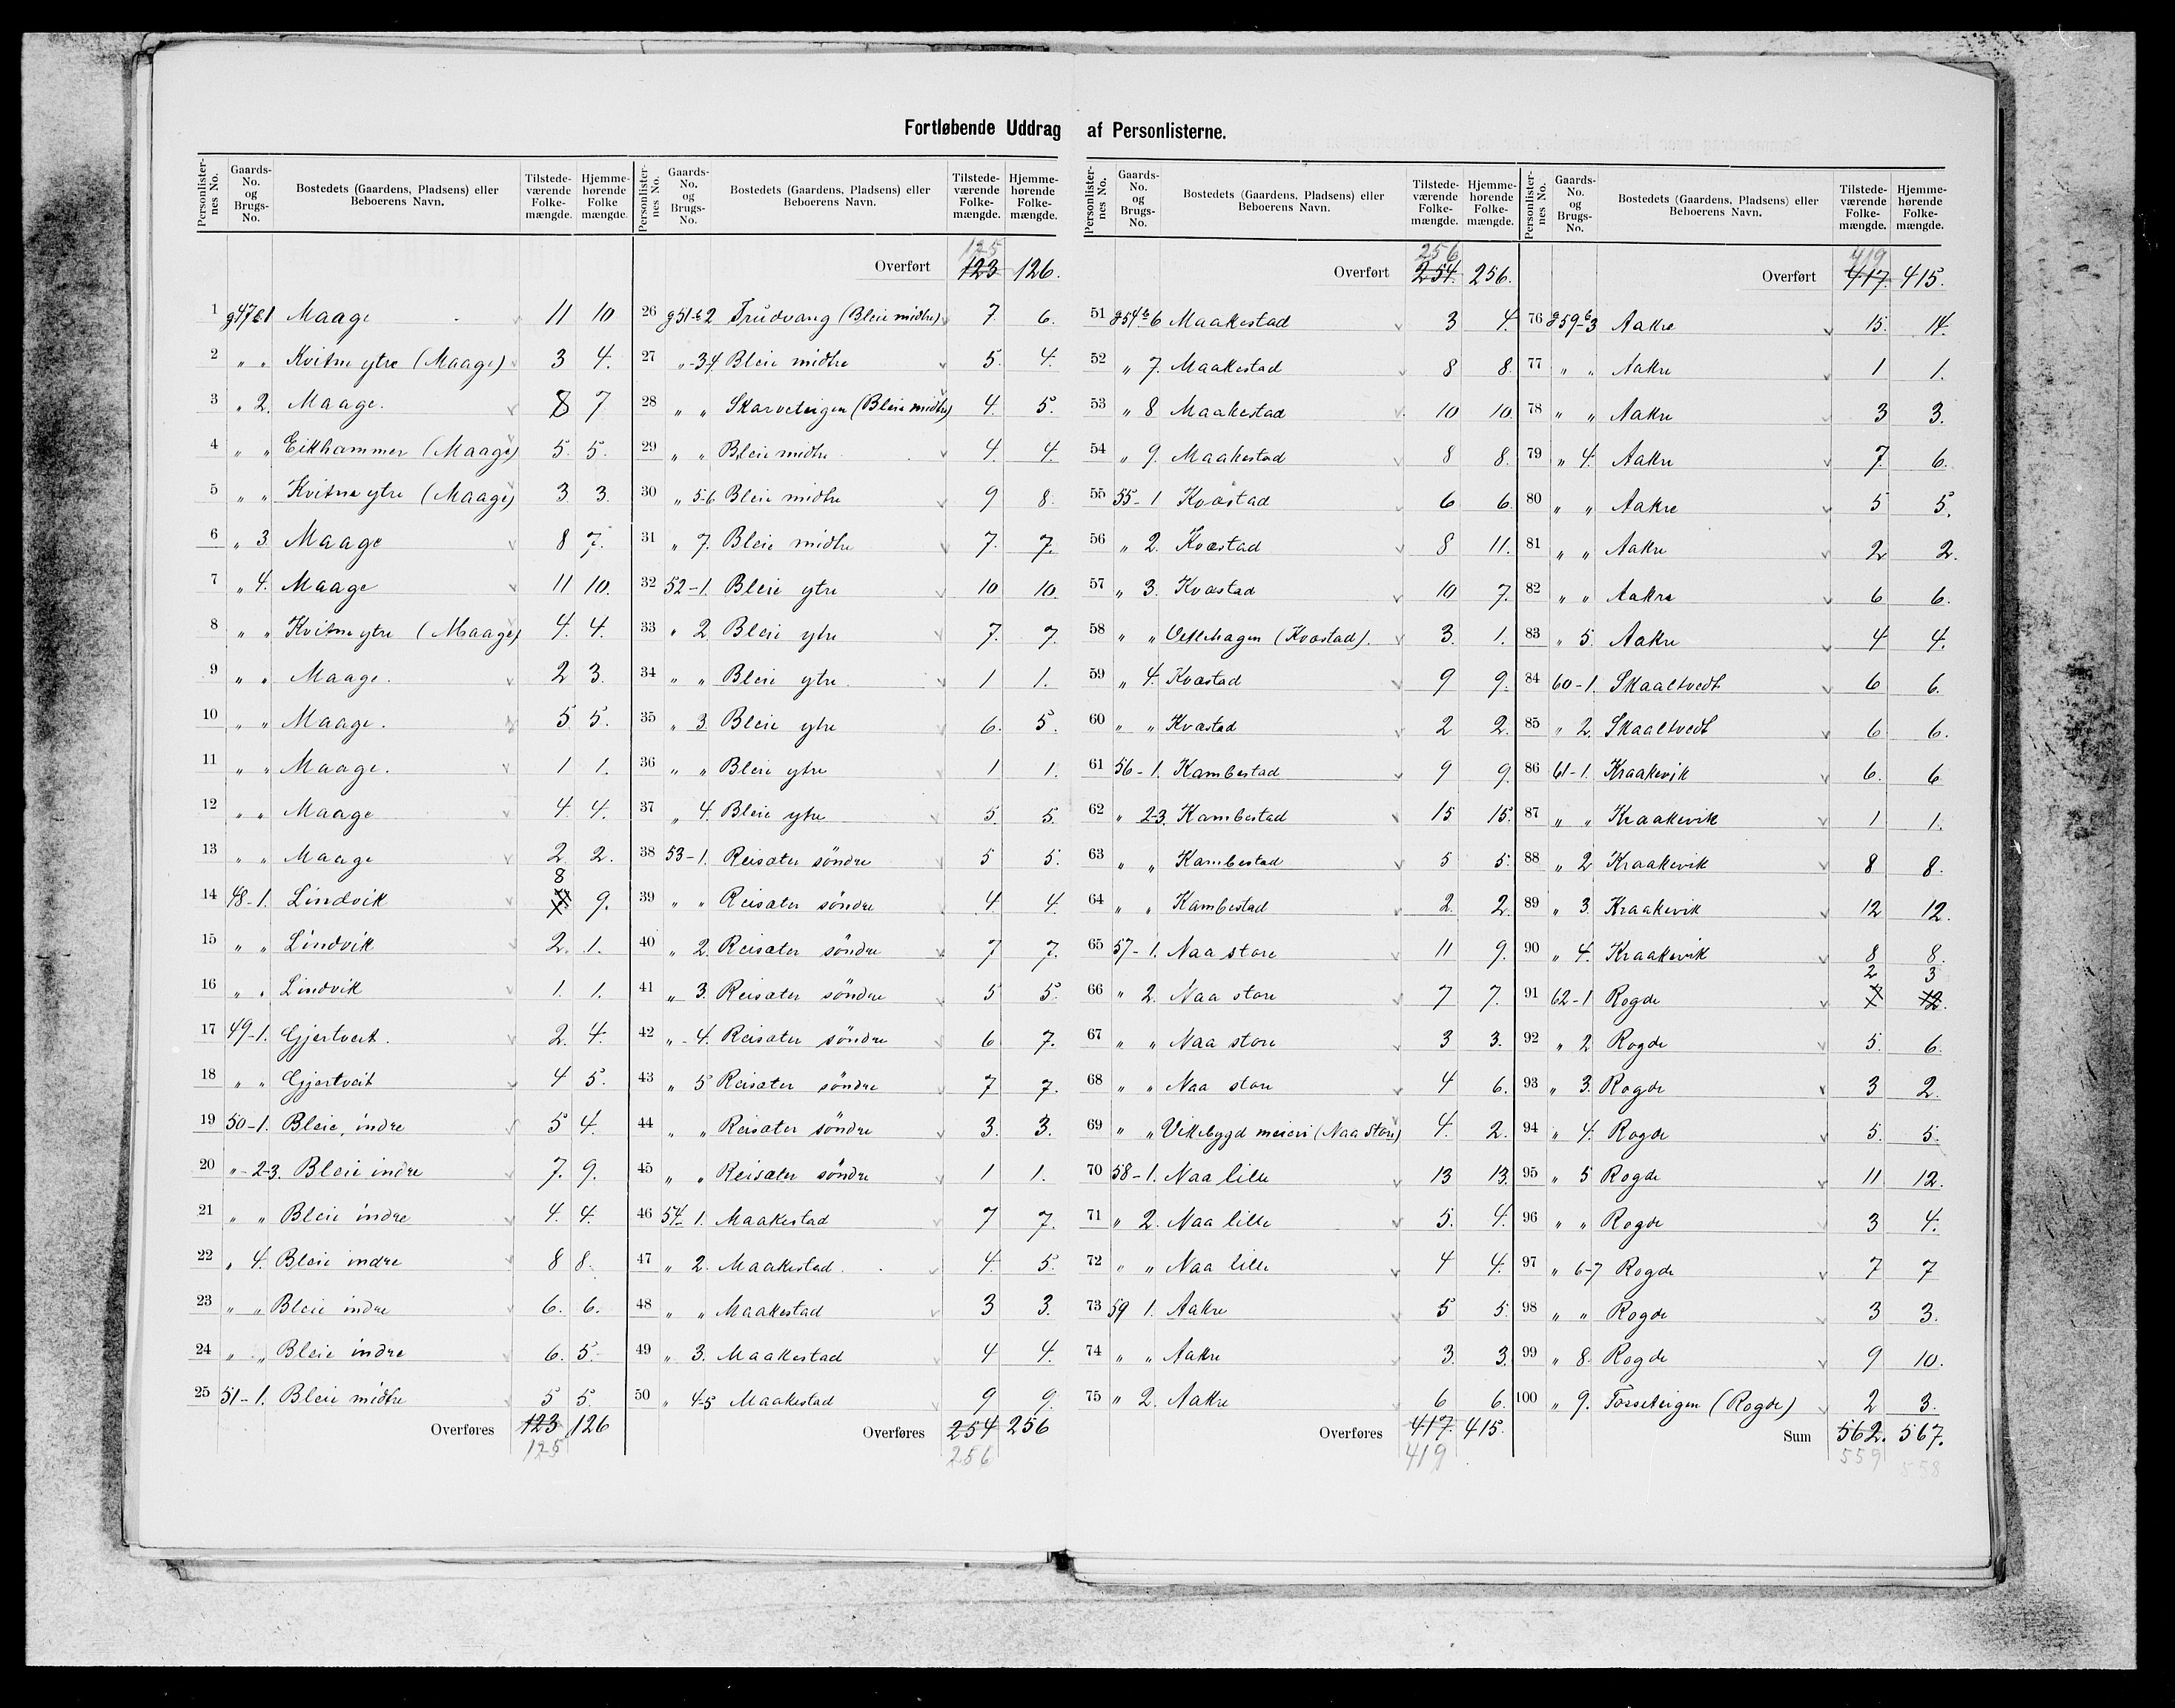 Fortløbende Uddrag af Personlisterne.
Personlisternes No. Gaards-No. og Brugs-No. Bostedets (Gaardens, Pladsens) eller Beboerens Navn. Tilstedeværende Folkemængde. Hjemmehørende Folke mængde.
1 g47 b1 Maage 11 10
2 " " Kvitne ytre (Maage) 3 4.
3 " 2. Maage. 8 7
4 " " Eikhammer (Maage) 5. 5.
5 " " Kvitne ytre (Maage) 3. 3.
6 " 3. Maage 8 7.
7 " 4. Maage 11 10.
8 " " Kvitne ytre (Maage) 4. 4.
9 " " Maage. 2 3.
10 " " Maage. 5. 5.
11 " " Maage. 1 1.
12 " " Maage 4. 4.
13 " " Maage 2. 2.
14 48-1. Lindvik 8 9.
15 " " Lindvik 2. 1.
16 " " Lindvik 1. 1.
17 49-1. Gjertveit. 2. 4.
18 " " Gjertveit 4 5.
19 50-1. Bleie, indre 5 4.
20 " -2-3. Bleie indre 7. 9.
21 " " Bleie indre 4. 4.
22 " 4. Bleie indre 8 8.
23 " " Bleie indre 6. 6.
24 " " Bleie indre 6. 5.
25 51-1. Bleie midtre 5 5.
Overføres 123 126
125
Personlisternes No. Gaards-No. og Brugs-No. Bostedets (Gaardens, Pladsens) eller Beboerens Navn. Tilstedeværende Folkemængde. Hjemmehørende Folkemængde.
125
Overført 123 126.
26 g51-b2 Trudvang (Bleie midtre) 7. 6.
27 " -3-4 Bleie midtre 5. 4.
28 " " Skarveteigen (Bleie midtre) 4. 5.
29 " " Bleie midtre 4. 4.
30 " 5-6 Bleie midtre 9 8.
31 " 7. Bleie midtre 7. 7.
32 52-1. Bleie ytre 10 10.
33 " 2. Bleie ytre 7. 7.
34 " " Bleie ytre. 1 1.
35 " 3. Bleie ytre 6. 5.
36 " " Bleie ytre 1 1.
37 " 4. Bleie ytre 5. 5.
38 53-1. Reisæter söndre 5 5.
39 " " Reisæter söndre 4. 4.
40 " 2. Reisæter söndre 7 7.
41 " 3. Reisæter söndre 5 5.
42 " -4. Reisæter söndre 6 7.
43 " 5 Reisæter söndre 7 7.
44 " " Reisæter söndre 3. 3.
45 " " Reisæter söndre 1 1.
46 54- 1. Maakestad 7 7.
47 " 2. Maakestad. 4. 5.
48 " " Maakestad 3 3.
49 " 3. Maakestad 4 4.
50 " 4-5 Maakestad 9 9.
Overføres 254 256
256
Personlisternes No. Gaards-No. og Brugs-No. Bostedets (Gaardens, Pladsens) eller Beboerens Navn. Tilstedeværende Folkemængde. Hjemmehørende Folkemængde.
256
Overført 254. 256.
51 g54 b6 Maakestad 3 4.
52 " 7. Maakestad 8 8.
53 " 8 Maakestad 10 10.
54 " 9. Maakestad 8 8.
55 55-1 Kvæstad 6 6.
56 " 2. Kvæstad 8 11.
57 " 3. Kvæstad 10 7.
58 " " Veslehagen (Kvæstad). 3. 1.
59 " 4. Kvæstad 9 9.
60 " " Kvæstad 2 2.
61 56-1. Kambestad 9 9.
62 " 2-3. Kambestad 15 15.
63 " " Kambestad 5 5.
64 " " Kambestad 2. 2.
65 57-1. Naa store 11 9.
66 " 2. Naa store 7 7.
67 " " Naa store 3 3.
68 " " Naa store 4 6.
69 " " Vikebygd meieri (Naa store) 4. 2.
70 58-1. Naa lille 13 13.
71 " 2. Naa lille 5. 4.
72 " " Naa lille 4 4.
73 59 1. Aakre 5 5.
74 " " Aakre 3. 3.
75 " 2. Aakre 6 6.
Overføres 417. 415.
419
Personlisternes No. Gaards-No. og Brugs-No. Bostedets (Gaardens, Pladsens) eller Beboerens Navn. Tilstedeværende Folkemængde. Hjemmehørende Folkemængde.
419
Overført 417. 415.
76 g59-b3 Aakre 15. 14.
77 " " Aakre 1 1.
78 " " Aakre 3 3.
79 " 4. Aakre 7. 6.
80 " " Aakre 5 5.
81 " " Aakre 2 2.
82 " " Aakre 6 6.
83 " 5. Aakre 4 4.
84 60-1. Skaaltvedt 6 6.
85 " 2. Skaaltvedt 6 6.
86 61-1. Kraakevik 6. 6
87 " " Kraakevik 1 1.
88 " 2 Kraakevik 8 8.
89 " 3. Kraakevik 12 12.
90 " 4. Kraakevik 8 8.
2 3
91 62-1 Rogde 7 12.
92 " 2 Rogde 5. 6.
93 " 3. Rogde 3 2.
94 " 4. Rogde 5. 5.
95 " 5 Rogde 11 12.
96 " " Rogde 3 4.
97 " 6-7 Rogde 7 7
98 " " Rogde 3 3.
99 " 8. Rogde 9 10.
100 " 9. Fosseteigen (Rogde) 2 3.
Sum 562. 567.
559 558